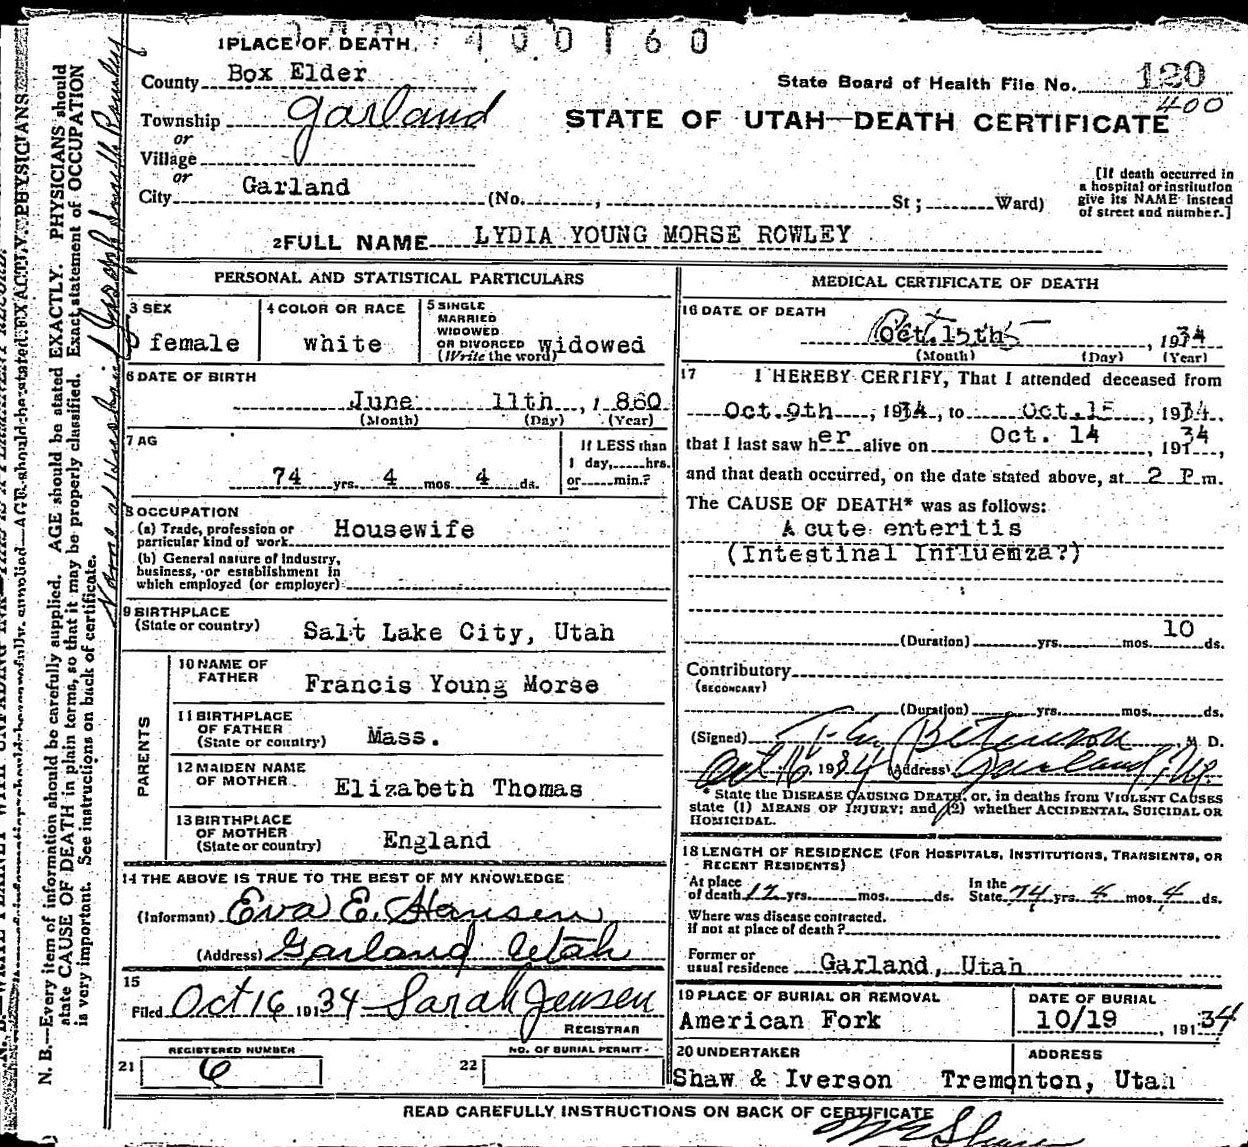 400160
1 PLACE OF DEATH
County Box Elder
State Board of Health File No. 120
400
Township Garland
STATE OF UTAH—DEATH CERTIFICATE
or
Village
or
City Garland (No. , St; Ward)
[If death occurred in a hospital or institution give its NAME instead of street and number.]
2 FULL NAME LYDIA YOUNG MORSE ROWLEY
PERSONAL AND STATISTICAL PARTICULARS
3 SEX
female
4 COLOR OR RACE
white
5 SINGLE
MARRIED
WIDOWED
OR DIVORCED
(Write the word) widowed
6 DATE OF BIRTH
June 11th, 1860
(Month) (Day) (Year)
7 AG
74 yrs. 4 mos. 4 ds.
If LESS than
1 day, hrs.
or min.?
8 OCCUPATION
(a) Trade, profession or
particular kind of work Housewife
(b) General nature of industry,
business, or establishment in
which employed (or employer)
9 BIRTHPLACE
(State or country) Salt Lake City, Utah
PARENTS
10 NAME OF
FATHER Francis Young Morse
11 BIRTHPLACE
OF FATHER
(State or country) Mass.
12 MAIDEN NAME
OF MOTHER Elizabeth Thomas
13 BIRTHPLACE
OF MOTHER
(State or country) England
14 THE ABOVE IS TRUE TO THE BEST OF MY KNOWLEDGE
(Informant) Eva E. Hansen
(Address) Garland Utah
15
Filed Oct 16 19134 Sarah Jensen
REGISTRAR
REGISTERED NUMBER
21 6
NO. OF BURIAL PERMIT
22
MEDICAL CERTIFICATE OF DEATH
16 DATE OF DEATH
Oct. 15th, 1934
(Month) (Day) (Year)
17 I HEREBY CERTIFY, That I attended deceased from
Oct. 9th, 1934, to Oct. 15, 1934
that I last saw her alive on Oct. 14, 19134,
and that death occurred, on the date stated above, at 2 P.m.
The CAUSE OF DEATH* was as follows:
Acute enteritis
(Intestinal Influemza?)
(Duration) yrs. mos. 10 ds.
Contributory
(SECONDARY)
(Duration) yrs. mos. ds.
(Signed) M D.
Oct 16 1934 (Address) Garland
* State the DISEASE CAUSING DEATH, or, in deaths from VIOLENT CAUSES
state (1) MEANS OF INJURY; and (2) whether ACCIDENTAL, SUICIDAL OR
HOMICIDAL.
18 LENGTH OF RESIDENCE (FOR HOSPITALS, INSTITUTIONS, TRANSIENTS, OR
RECENT RESIDENTS)
At place
of death 12 yrs. mos. ds. In the
State 74 yrs 4 mos 4 ds.
Where was disease contracted.
if not at place of death?
Former or
usual residence Garland, Utah
19 PLACE OF BURIAL OR REMOVAL
American Fork
DATE OF BURIAL
10/19, 19134
20 UNDERTAKER
Shaw & Iverson
ADDRESS
Tremonton, Utah
READ CAREFULLY INSTRUCTIONS ON BACK OF CERTIFICATE
N. B.—Every item of information should be carefully supplied. AGE should be stated EXACTLY. PHYSICIANS should
state CAUSE OF DEATH in plain terms, so that it may be properly classified. Exact statement of OCCUPATION
is very important. See instructions on back of certificate.
Name of Husband Joseph Smith Rowley